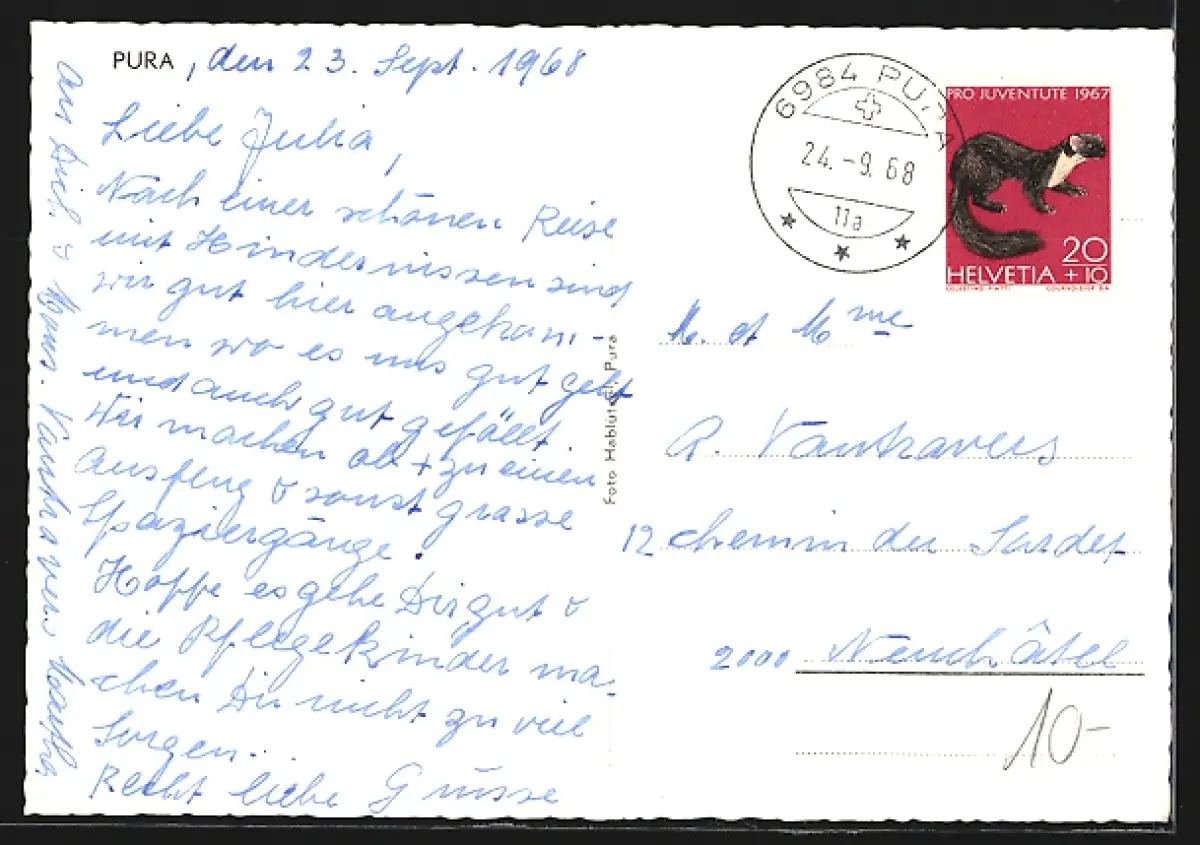 PURA, den 23. Sept. 1968
Liebe Julia,
Nach einer schönen Reise
mit Hindernissen sind
wir gut hier angekom-
men wo es uns gut geht
und auch gut gefällt.
Wir machen ab + zu einen
Ausflug & sonst grosse
Spaziergänge.
Hoffe es gehe Dir gut &
die Pflegekinder ma-
chen Dir nicht zu viel
Sorgen.
Recht liebe Grüsse
an Dich & Vautravers Martha
Foto Pura
6984 PURA
24.-9.68
11a
PRO JUVENTUTE 1967
20
HELVETIA +10
CELESTINO PIATTI COURVOISIER SA
M. et Mme
R. Vautravers
12 chemin des
2000 Neuchâtel
10-